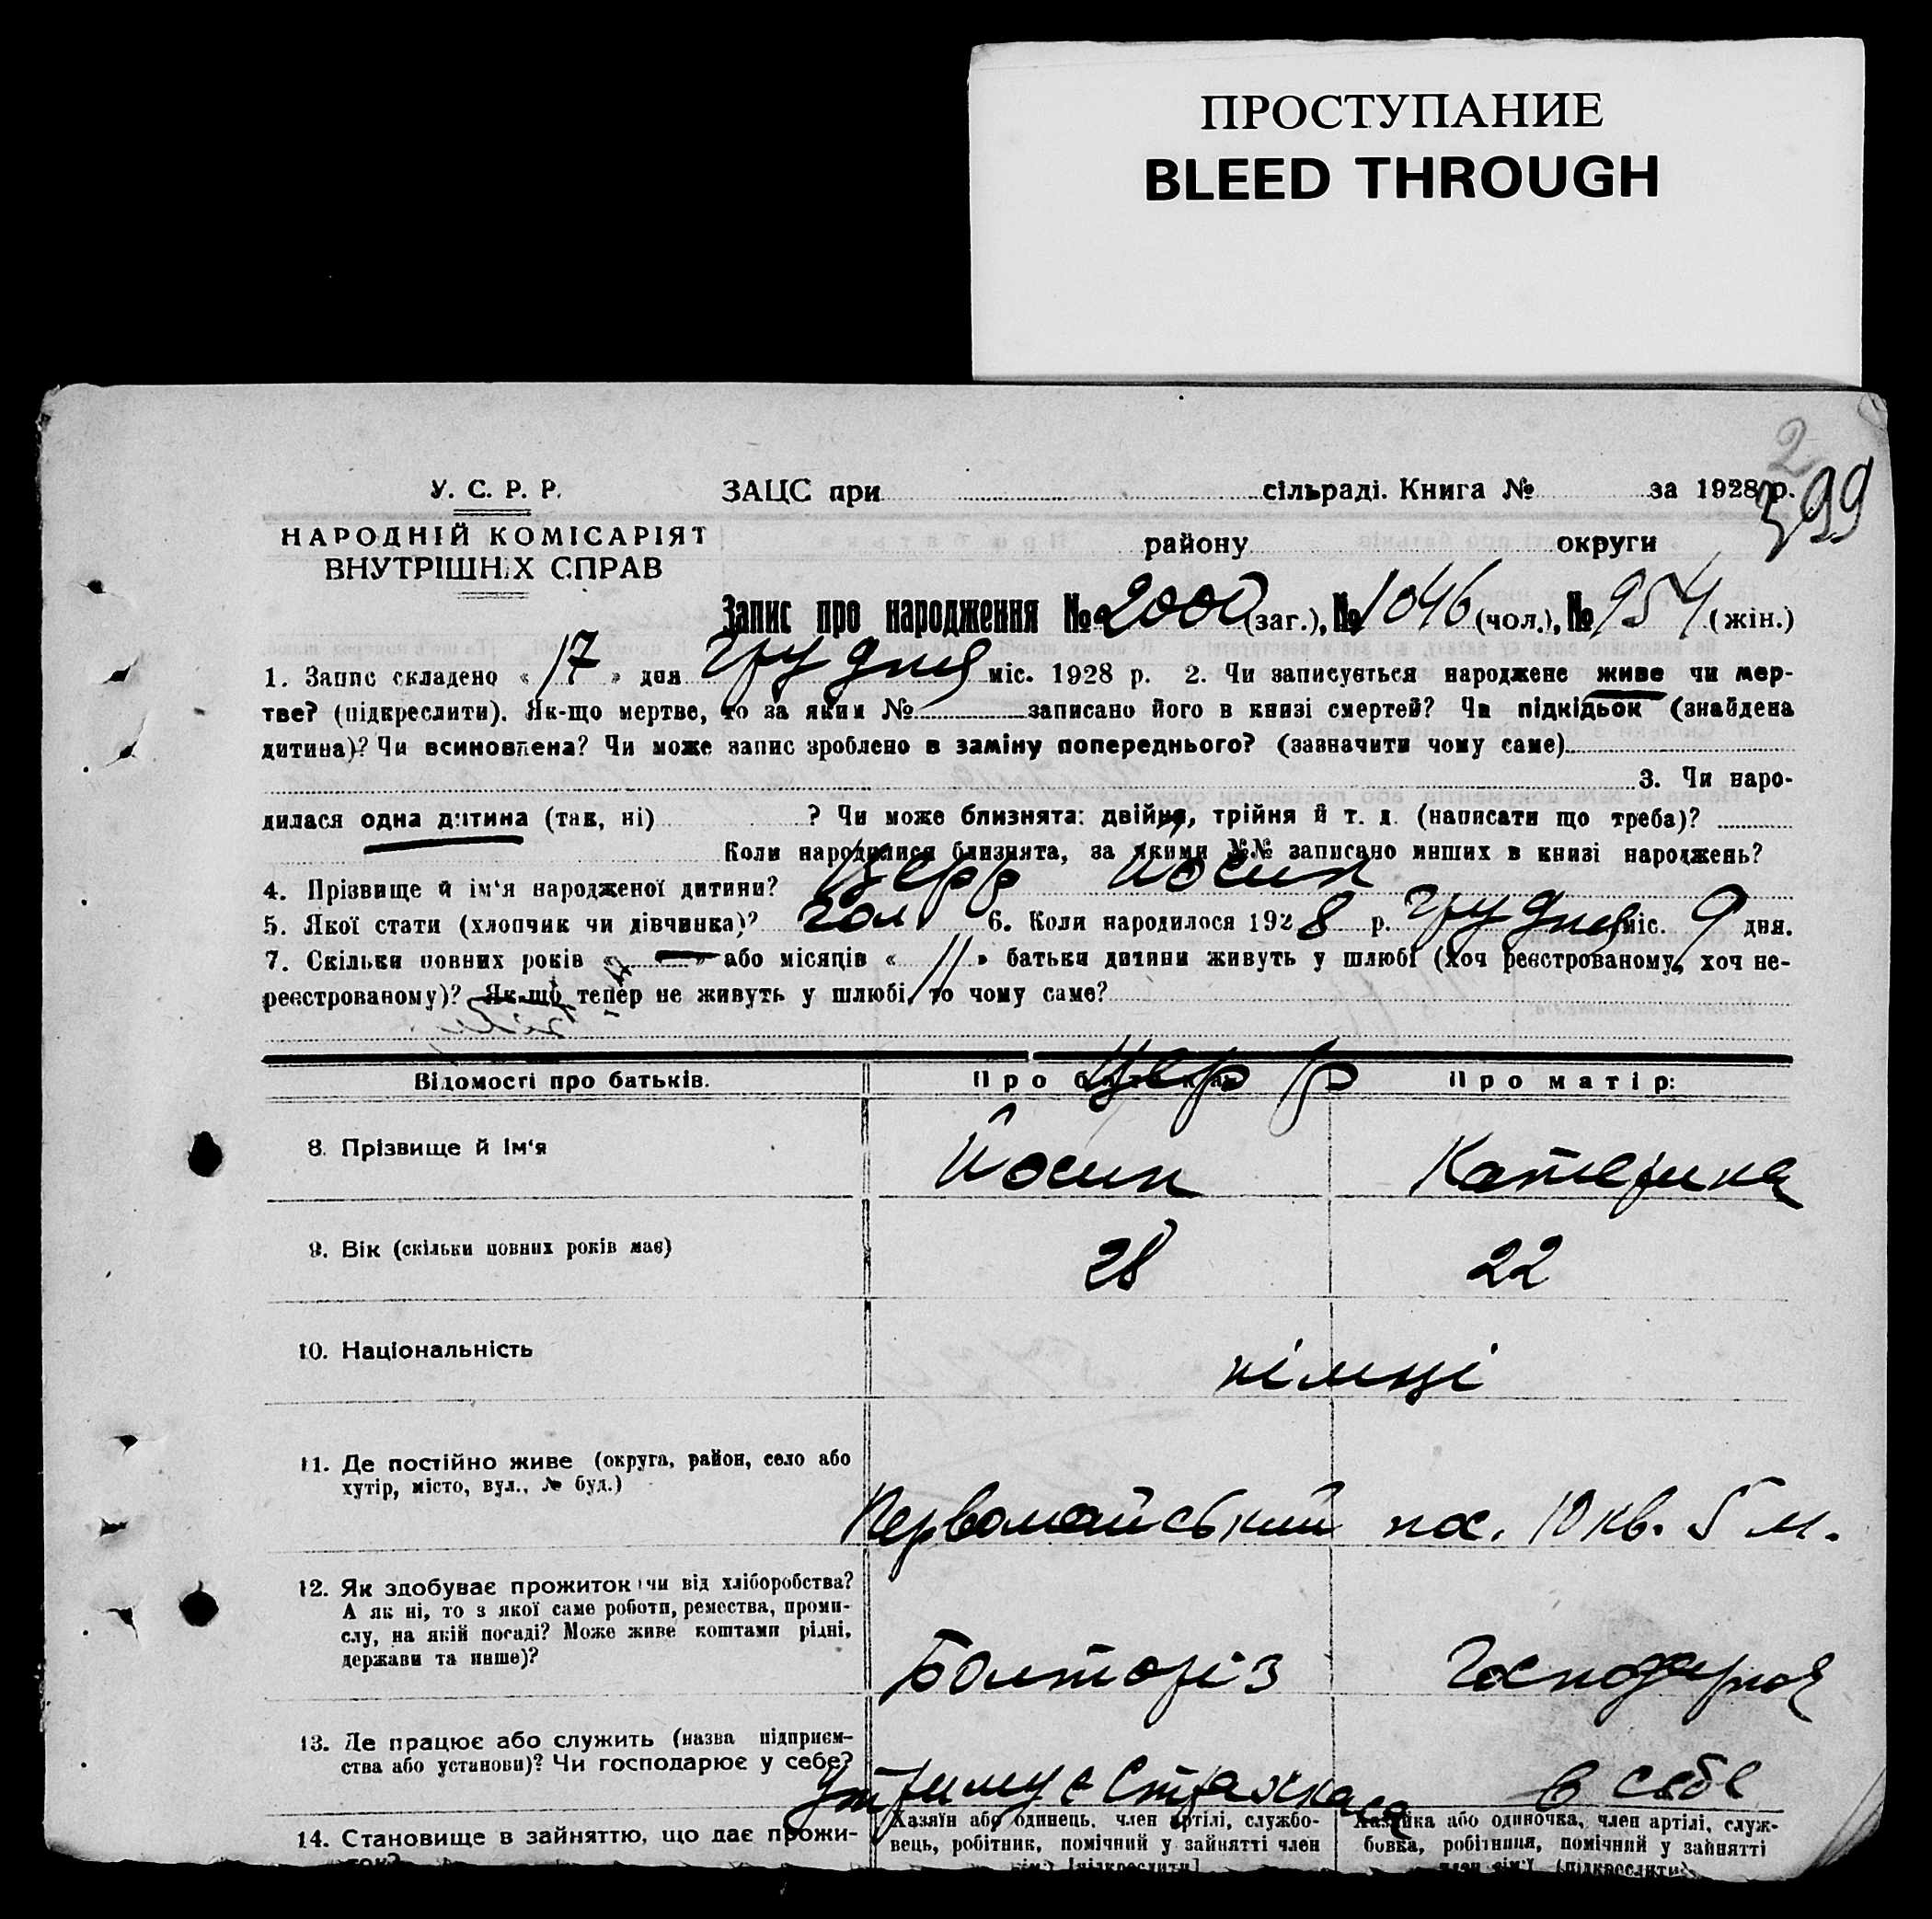 ПРОСТУПАНИЕ
BLEED THROUGH
2
399
У. С. Р. Р.
НАРОДНІЙ КОМІСАРІЯТ
ВНУТРІШНІХ СПРАВ
ЗАЦС при сільраді. Книга № за 1928 р.
району округи
Запис про народження № 2000 (заг.), № 1046 (чол.), № 954 (жін.)
1. Запис складено « 17 » дня грудня міс. 1928 р. 2. Чи записується народжене живе чи мер-
тве? (підкреслити). Як-що мертве, то за яким № записано його в книзі смертей? Чи підкідьок (знайдена
дитина)? Чи всиновлена? Чи може запис зроблено в заміну попереднього? (зазначити чому саме)
3. Чи наро-
дилася одна дитина (так, ні) ? Чи може близнята: двійня, трійня й т. д. (написати що треба)?
Коли народилися близнята, за якими №№ записано инших в книзі народжень?
4. Прізвище й ім‘я народженої дитини? Церр Йосип
5. Якої стати (хлопчик чи дівчинка)? чол 6. Коли народилося 1928 р. грудня міс. 9 дня.
7. Скільки повних років « — » або місяців « 11 » батьки дитини живуть у шлюбі (хоч реєстрованому, хоч не-
реєстрованому)? Як-що тепер не живуть у шлюбі, то чому саме?
Відомості про батьків. Про батька: Про матір:
Церр
8. Прізвище й ім‘я Йосип Катерина
9. Вік (скільки повних років має) 28 22
10. Національність німці
11. Де постійно живе (округа, район, село або
хутір, місто, вул., № буд.)
Первомайський пос. 10 кв. 5 м.
12. Як здобуває прожиток чи від хліборобства?
А як ні, то з якої саме роботи, ремества, проми-
слу, на якій посаді? Може живе коштами рідні,
держави та инше)?
Болторіз Господарює
13. Де працює або служить (назва підприєм-
ства або установи)? Чи господарює у себе?
Утримує Страхкаса в себе
14. Становище в зайняттю, що дає прожи-
ток?
Хазяїн або одинець, член артілі, службо-
вець, робітник, помічний у зайнятті член
сім'ї [підкреслити]
Хазяйка або одиночка, член артілі, служ-
бовка, робітниця, помічний у зайнятті
член сім'ї (підкреслити)